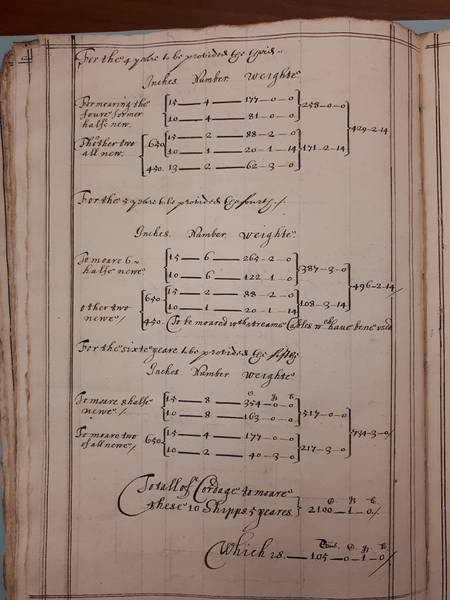 For the 4 yeare to be provided the third
Inches Number Weighte
For moaring the foure former halfe new
15 — 4 — 177—0—0
10 — 4 — 81—0—0
258—0—0
Th other two all new
650
15 — 2 — 88—2—0
10 — 1 — 20—1—14
450 13 — 2 — 62—3—0
171—2—14
429—2—14
For the 5 yeare to be provided the fourth
Inches Number Weighte
To moare 6 halfe newe
15 — 6 — 265—2—0
10 — 6 — 122—1—0
387—3—0
other two newe
650
15 — 2 — 88—2—0
10 — 1 — 20—1—14
108—3—14
496—2—14
450 To be moared wth streame Cables wch haue bene vsed
For the sixte yeare to be provided the fifth
Inches Number Weighte
To moare 8 halfe newe
15 — 8 — 354—0—0
10 — 8 — 163—0—0
517—0—0
To moare two of all newe
650
15 — 4 — 177—0—0
10 — 2 — 40—3—0
217—3—0
734—3—0
Totall of Cordage to moare
these 10 Shipps 5 yeares 2100—1—0
Which is — 105—0—1—0